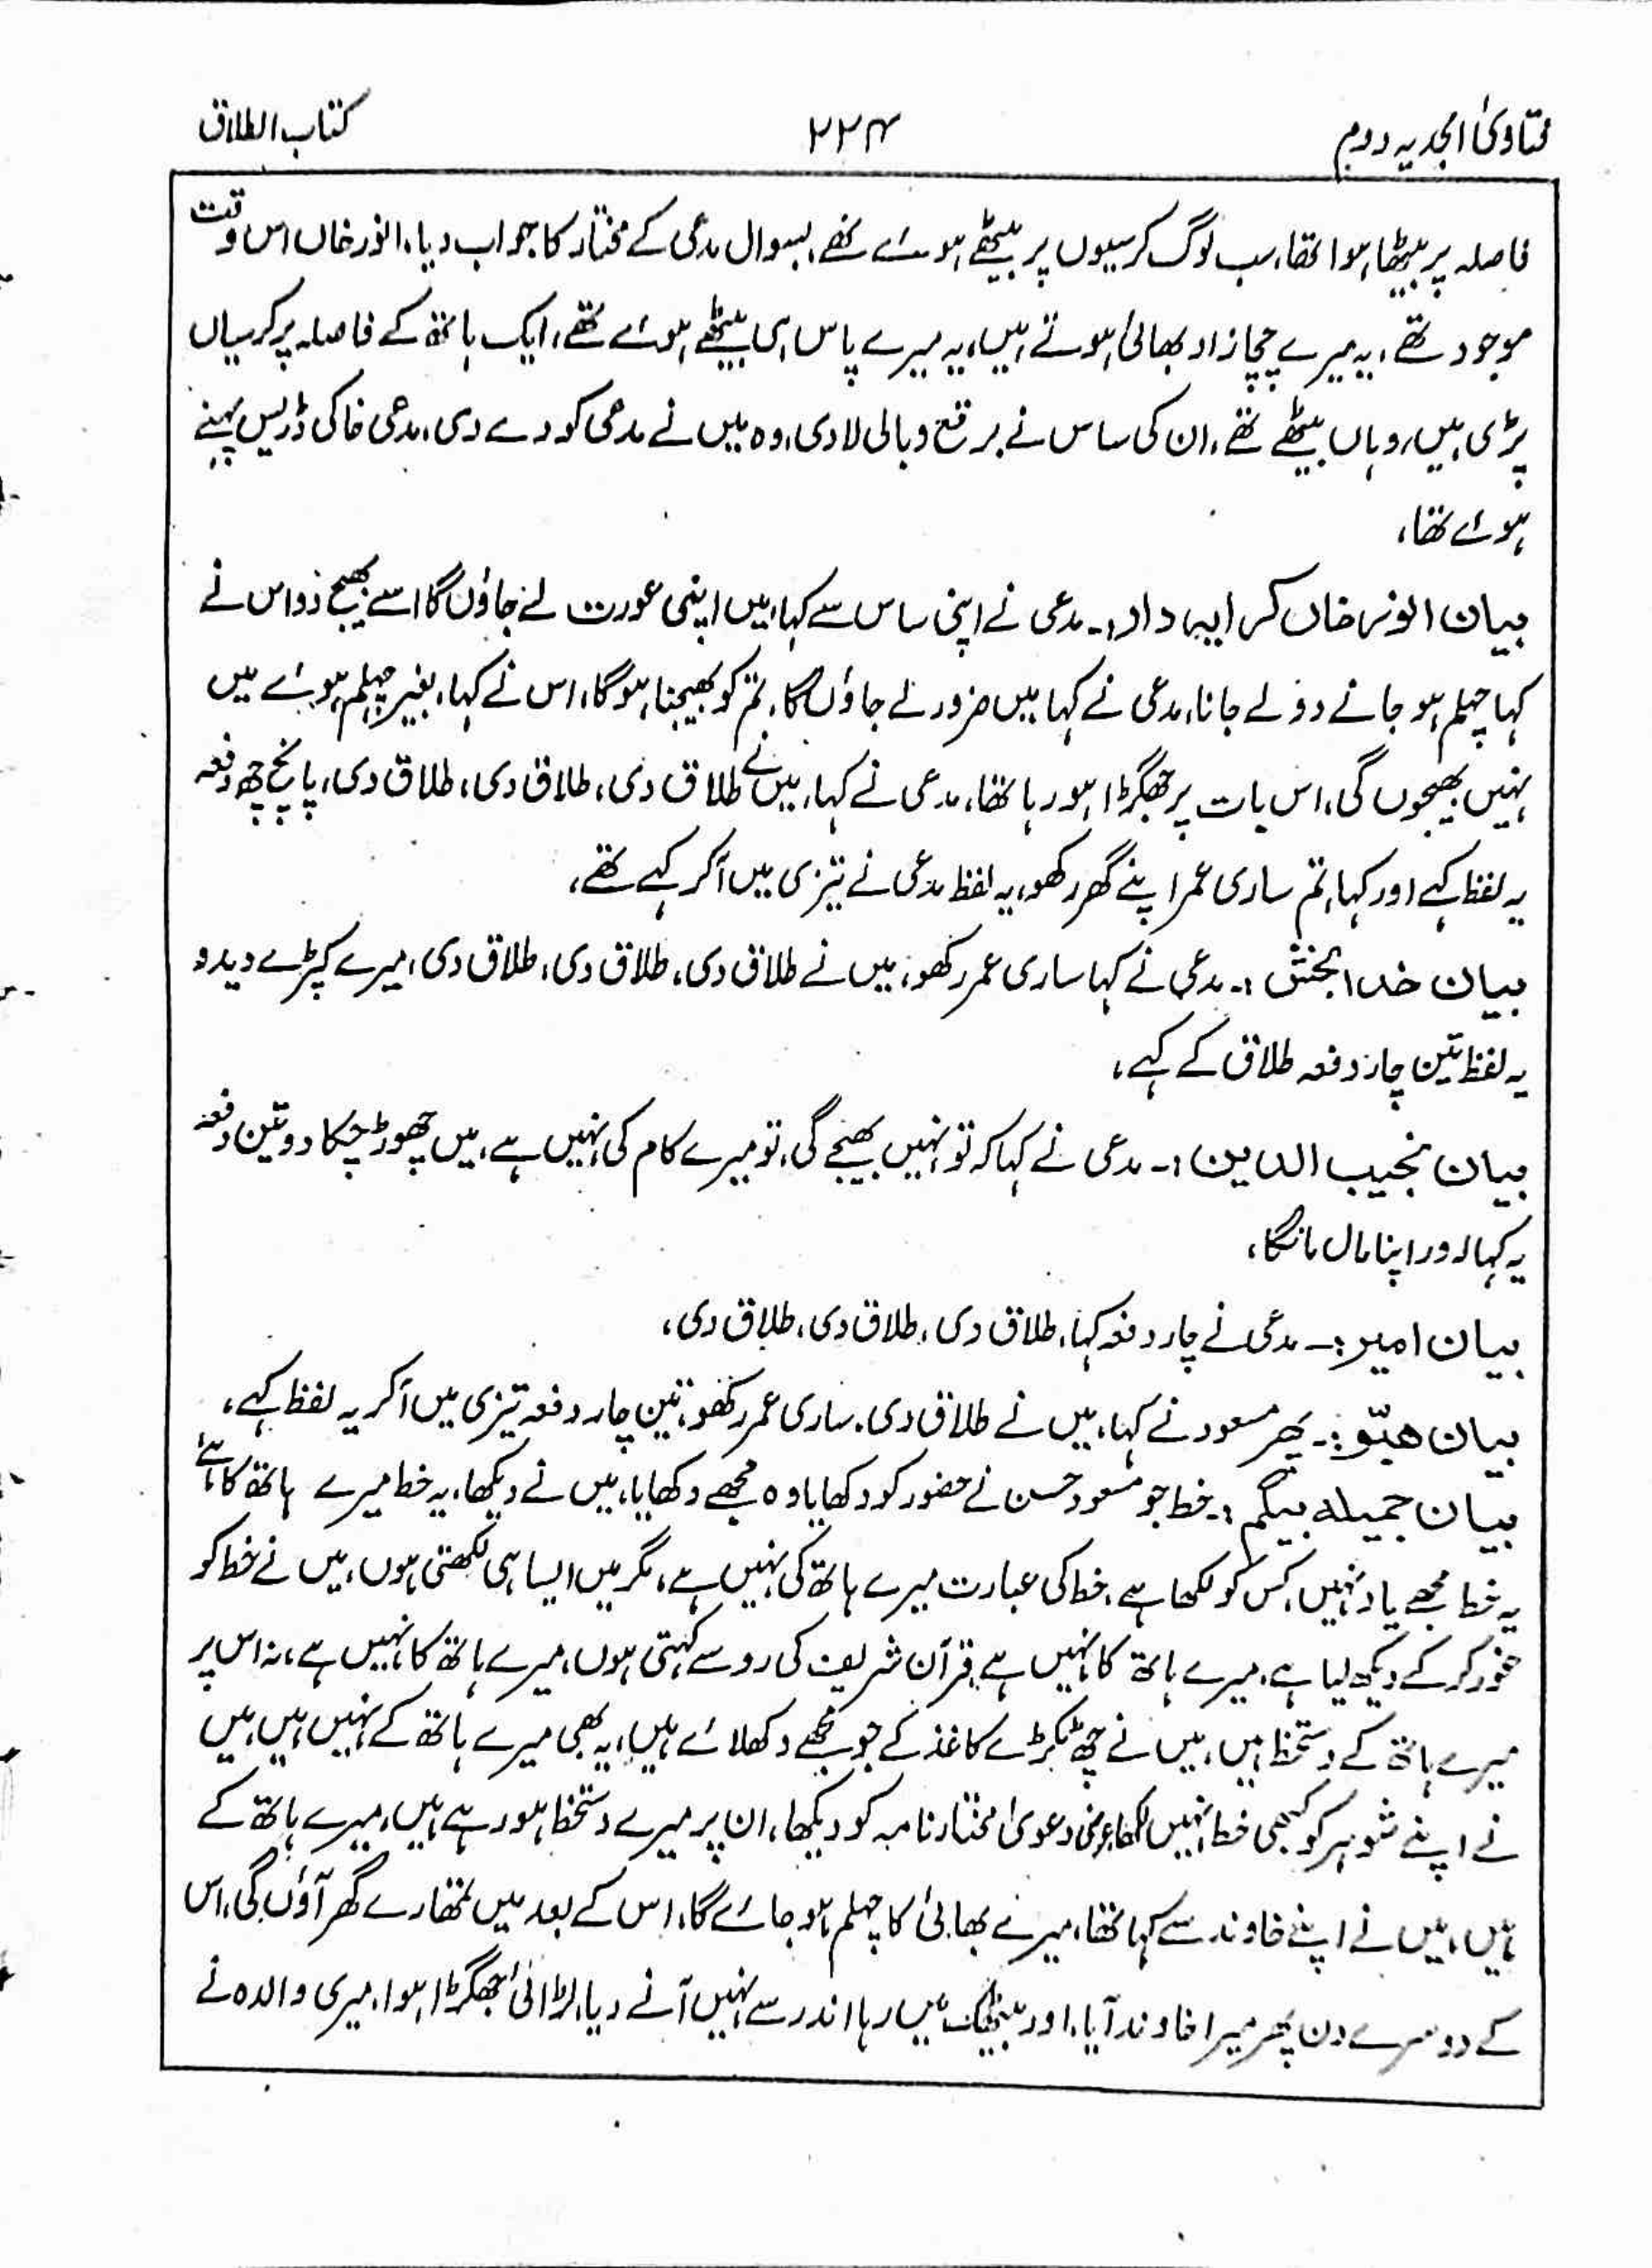 فتاویٰ امجدیہ دوم
۲۲۴
کتاب الطلاق
فاصلہ پر بیٹھا ہوا تھا، سب لوگ کرسیوں پر بیٹھے ہوئے تھے، بسوال مدعی کے مختار کا جواب دیا، انور خاں اس وقت
موجود تھے، یہ میرے چچازاد بھائی ہوتے ہیں، یہ میرے پاس ہی بیٹھے ہوئے تھے، ایک ہاتھ کے فاصلہ پر کرسیاں
پڑی ہیں، وہاں بیٹھے تھے، ان کی ساس نے برقع و بالی لادی، وہ میں نے مدعی کو دے دی، مدعی خاکی ڈریس پہنے
ہوئے تھا،
بیان انور خاں کرایہ دار :۔ مدعی نے اپنی ساس سے کہا، میں اپنی عورت لے جاؤں گا اسے بھیج دو اس نے
کہا چہلم ہو جانے دو لے جانا، مدعی نے کہا میں ضرور لے جاؤں گا، تم کو بھیجنا ہوگا، اس نے کہا، بغیر چہلم ہوئے میں
نہیں بھیجوں گی، اس بات پر جھگڑا ہو رہا تھا، مدعی نے کہا، میں نے طلاق دی، طلاق دی، طلاق دی، پانچ چھ دفعہ
یہ لفظ کہے اور کہا، تم ساری عمر اپنے گھر رکھو، یہ لفظ مدعی نے تیزی میں آکر کہے تھے،
بیان خدا بخش :۔ مدعی نے کہا ساری عمر رکھو، میں نے طلاق دی، طلاق دی، طلاق دی، میرے کپڑے دیدو
یہ لفظ تین چار دفعہ طلاق کے کہے،
بیان نجیب الدین :۔ مدعی نے کہا کہ تو نہیں بھیجے گی، تو میرے کام کی نہیں ہے، میں چھوڑ چکا دو تین دفعہ
یہ کہا اور اپنا مال مانگا،
بیان امیر :۔ مدعی نے چار دفعہ کہا، طلاق دی، طلاق دی، طلاق دی،
بیان هبّو :۔ پھر مسعود نے کہا، میں نے طلاق دی، ساری عمر رکھو، تین چار دفعہ تیزی میں آکر یہ لفظ کہے،
بیان جمیلہ بیگم :۔ خط جو مسعود حسن نے حضور کو دکھایا وہ مجھے دکھایا، میں نے دیکھا، یہ خط میرے ہاتھ کا ہے
یہ خط مجھے یاد نہیں، کس کو لکھا ہے، خط کی عبارت میرے ہاتھ کی نہیں ہے، مگر میں ایسا ہی لکھتی ہوں، میں نے خط کو
غور کر کے دیکھ لیا ہے، میرے ہاتھ کا نہیں ہے، قرآن شریف کی رو سے کہتی ہوں، میرے ہاتھ کا نہیں ہے، نہ اس پر
میرے ہاتھ کے دستخط ہیں، میں نے چھ ٹکڑے کاغذ کے جو مجھے دکھلائے ہیں، یہ بھی میرے ہاتھ کے نہیں ہیں، میں
نے اپنے شوہر کو کبھی خط نہیں لکھا، عرضی دعویٰ مختار نامہ کو دیکھا، ان پر میرے دستخط ہو رہے ہیں، میرے ہاتھ کے
ہیں، میں نے اپنے خاوند سے کہا تھا، میرے بھائی کا چہلم ہو جائے گا، اس کے بعد میں تمھارے گھر آؤں گی، اس
کے دوسرے دن پھر میرا خاوند آیا، اور بیٹھک میں رہا اندر سے نہیں آنے دیا، لڑائی جھگڑا ہوا، میری والدہ نے